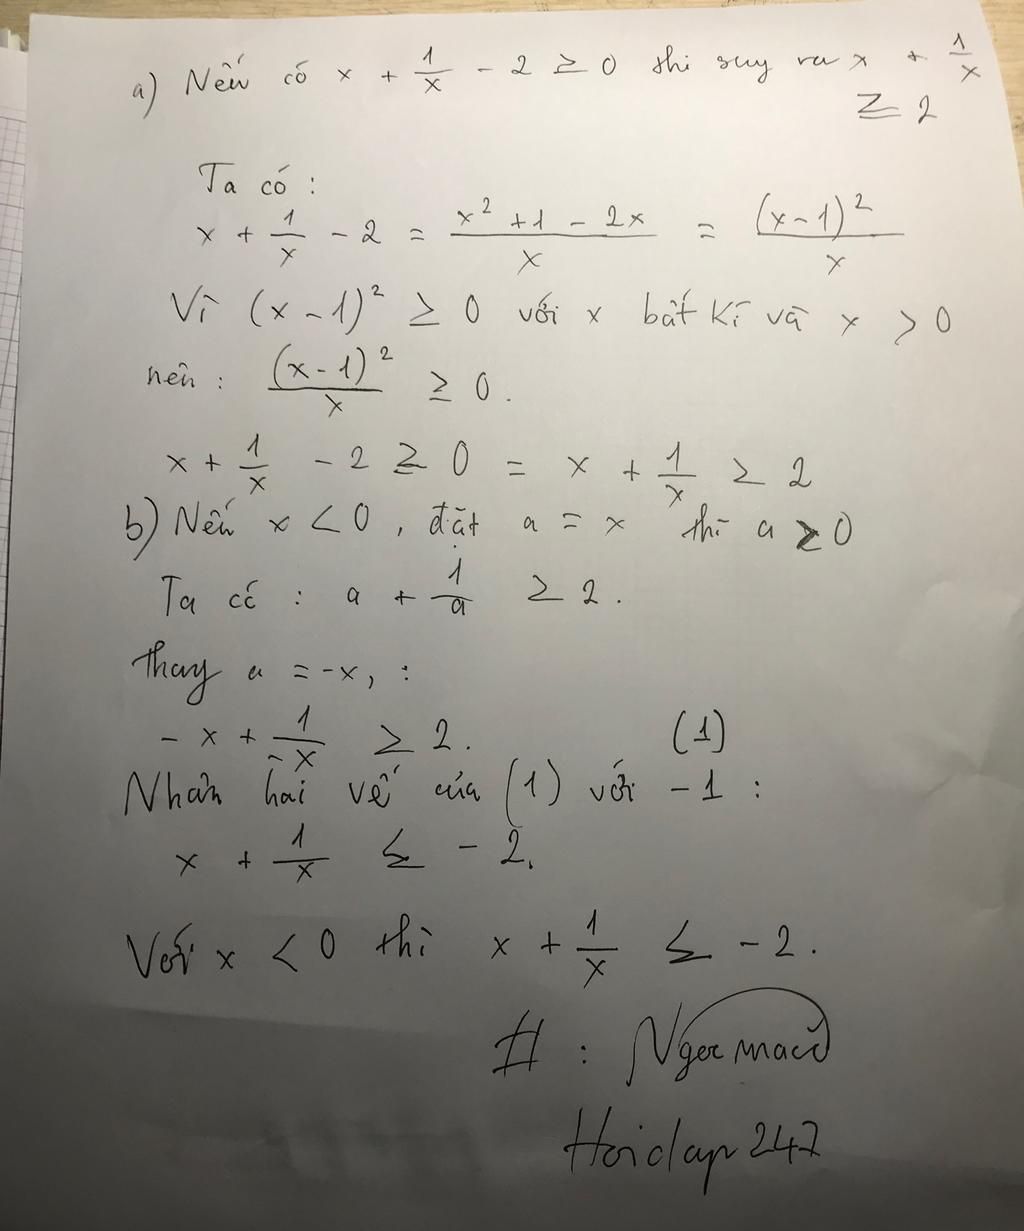 a) Nếu có x + 1/x - 2 ≥ 0 thì suy ra x + 1/x
≥ 2
Ta có :
x + 1/x - 2 = (x² + 1 - 2x)/x = (x-1)²/x
Vì (x-1)² ≥ 0 với x bất kì và x > 0
nên : (x-1)²/x ≥ 0.
x + 1/x - 2 ≥ 0 = x + 1/x ≥ 2
b) Nếu x < 0, đặt a = x thì a > 0
Ta có : a + 1/a ≥ 2.
Thay a = -x, :
- x + 1/-x ≥ 2. (1)
Nhân hai vế của (1) với -1 :
x + 1/x ≤ - 2.
Với x < 0 thì x + 1/x ≤ - 2.
# :
Hoidap247